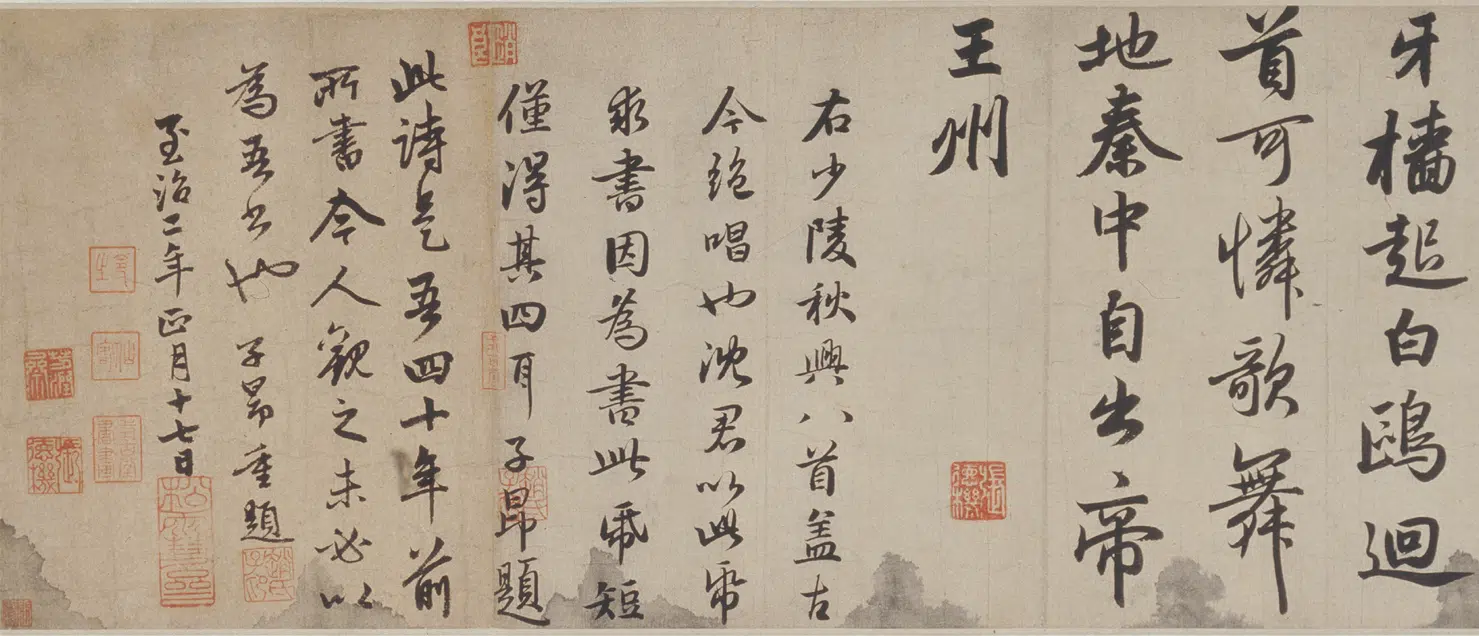 牙檣起白鷗迴
首可憐歌舞
地秦中自出帝
王州
右少陵秋興八首盖古
今絶唱也沈君以此紙
求書因為書此紙短
僅得其四耳子昂題
此詩是吾四十年前
所書今人觀之未必以
為吾书也子昂重題
至治二年正月十七日
張德機
張德機